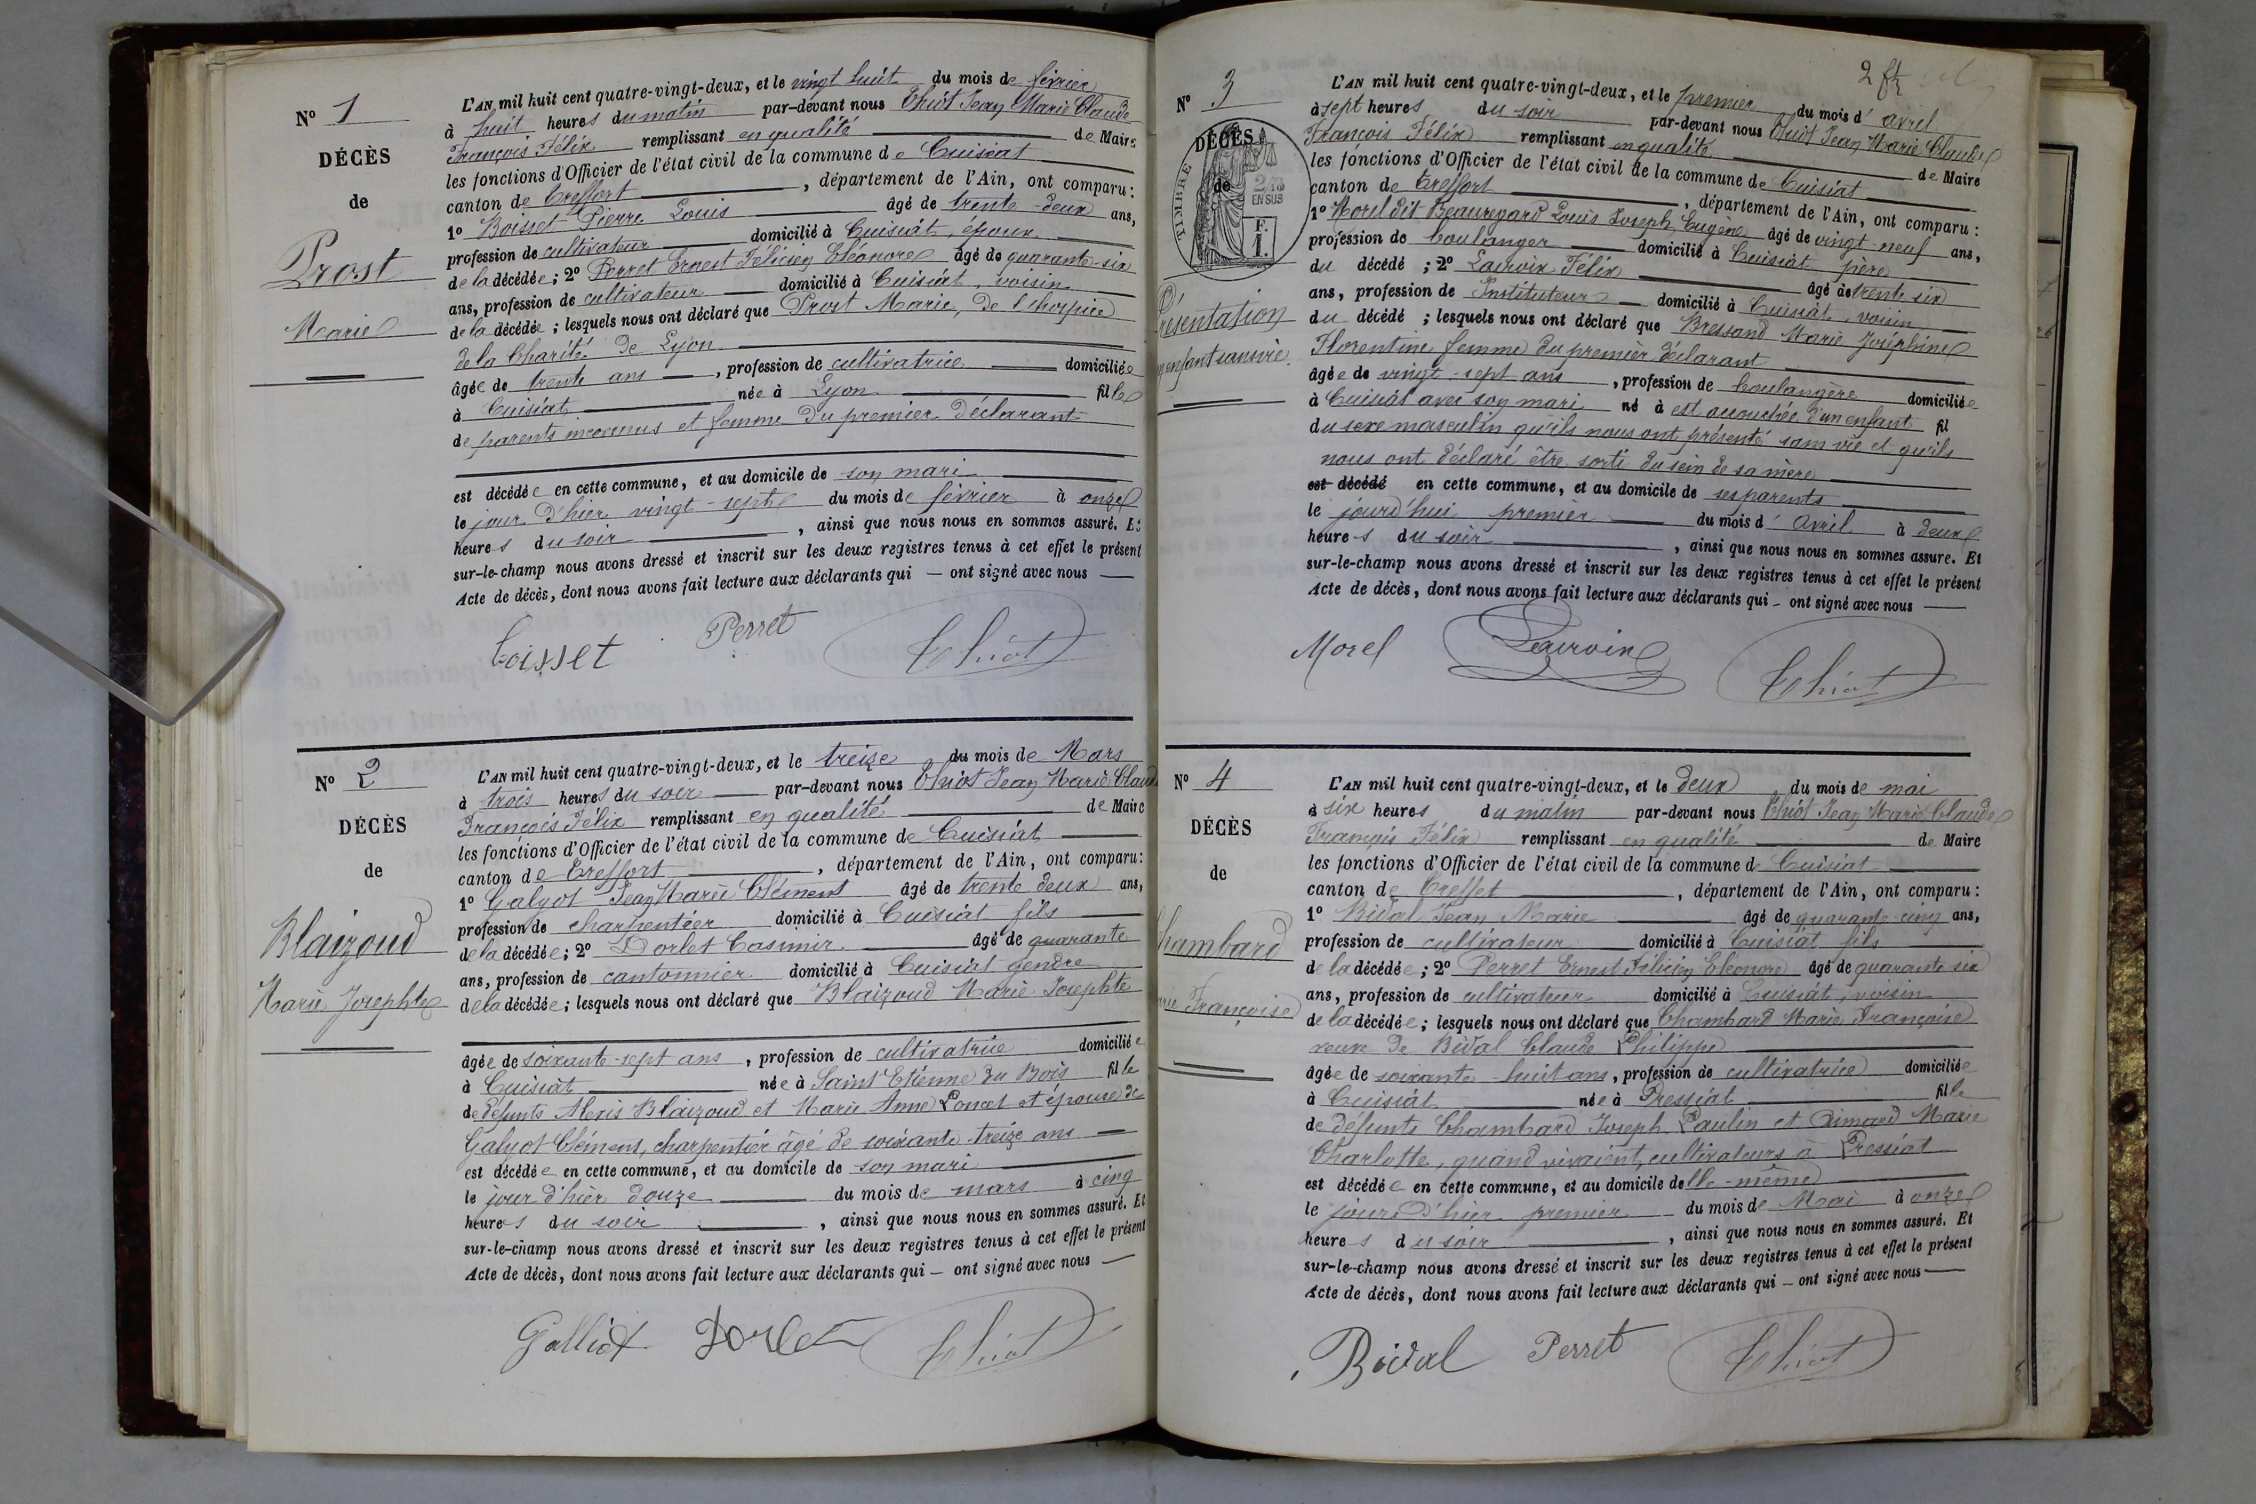 Nº 1
DÉCÈS
de
Prost
Marie
L'AN mil huit cent quatre-vingt-deux, et le vingt huit du mois de février
à huit heures du matin par-devant nous Thiot Jean Marie Claude
François Félix remplissant en qualité de Maire
les fonctions d'Officier de l'état civil de la commune de Cuisiat
canton de Treffort, département de l'Ain, ont comparu:
1º Boisset Pierre Louis âgé de trente-deux ans,
profession de cultivateur domicilié à Cuisiat, époux
de la décédée; 2º Perret Ernest Félicien Eléonore âgé de quarante-six
ans, profession de cultivateur domicilié à Cuisiat, voisin
de la décédée; lesquels nous ont déclaré que Prost Marie, De l'hospice
de la Charité De Lyon
âgée de trente ans, profession de cultivatrice domiciliée
à Cuisiat née à Lyon fille
de parents inconnus et femme Du premier Déclarant
est décédée en cette commune, et au domicile de son mari
le jour d'hier vingt-sept du mois de février à onze
heures du soir, ainsi que nous nous en sommes assuré. Et
sur-le-champ nous avons dressé et inscrit sur les deux registres tenus à cet effet le présent
Acte de décès, dont nous avons fait lecture aux déclarants qui — ont signé avec nous —
boisset Perret Thiot
Nº 2
DÉCÈS
de
Blaizoud
Marie Josephte
L'AN mil huit cent quatre-vingt-deux, et le treize du mois de Mars
à trois heures du soir par-devant nous Thiot Jean Marie Claude
François Félix remplissant en qualité de Maire
les fonctions d'Officier de l'état civil de la commune de Cuisiat
canton de Treffort, département de l'Ain, ont comparu:
1º Galyot Jean Marie Clément âgé de trente deux ans,
profession de charpentier domicilié à Cuisiat fils
de la décédée; 2º Dorlet Casimir âgé de quarante
ans, profession de cantonnier domicilié à Cuisiat gendre
de la décédée; lesquels nous ont déclaré que Blaizoud Marie Josephte
âgée de soixante-sept ans, profession de cultivatrice domiciliée
à Cuisiat née à Saint Etienne du Bois fille
de Défunts Alexis Blaizoud et Marie Anne Poncet et épouse de
Galyot Clément, charpentier âgé de soixante treize ans
est décédée en cette commune, et au domicile de son mari
le jour d'hier douze du mois de mars à cinq
heures du soir, ainsi que nous nous en sommes assuré. Et
sur-le-champ nous avons dressé et inscrit sur les deux registres tenus à cet effet le présent
Acte de décès, dont nous avons fait lecture aux déclarants qui — ont signé avec nous —
Galliot Dorlet Thiot
2
Nº 3
DÉCÈS
de
TIMBRE
EN SUS
F.
1.
Présentation
enfant sans vie
L'AN mil huit cent quatre-vingt-deux, et le premier du mois d'avril
à sept heures du soir par-devant nous Thiot Jean Marie Claude
François Félix remplissant en qualité de Maire
les fonctions d'Officier de l'état civil de la commune de Cuisiat
canton de Treffort, département de l'Ain, ont comparu:
1º Morel dit Beauregard Louis Joseph Eugène âgé de vingt-neuf ans,
profession de boulanger domicilié à Cuisiat père
du décédé; 2º Lacroix Félix âgé de trente six
ans, profession de Instituteur domicilié à Cuisiat, voisin
du décédé; lesquels nous ont déclaré que Bressand Marie Joséphine
Florentine femme du premier déclarant
âgée de vingt-sept ans, profession de boulangère domiciliée
à Cuisiat avec son mari né à est accouchée d'un enfant fil
du sexe masculin qu'ils nous ont présenté sans vie et qu'ils
nous ont déclaré être sorti du sein de sa mère
est décédé en cette commune, et au domicile de ses parents
le jourd'hui premier du mois d'avril à deux
heures du soir, ainsi que nous nous en sommes assuré. Et
sur-le-champ nous avons dressé et inscrit sur les deux registres tenus à cet effet le présent
Acte de décès, dont nous avons fait lecture aux déclarants qui — ont signé avec nous —
Morel Lacroix Thiot
Nº 4
DÉCÈS
de
Chambard
Marie Françoise
L'AN mil huit cent quatre-vingt-deux, et le Deux du mois de mai
à six heures du matin par-devant nous Thiot Jean Marie Claude
François Félix remplissant en qualité de Maire
les fonctions d'Officier de l'état civil de la commune de Cuisiat
canton de Treffort, département de l'Ain, ont comparu:
1º Bidal Jean Marie âgé de quarante-cinq ans,
profession de cultivateur domicilié à Cuisiat fils
de la décédée; 2º Perret Ernest Félicien Eléonore âgé de quarante six
ans, profession de cultivateur domicilié à Cuisiat, voisin
de la décédée; lesquels nous ont déclaré que Chambard Marie Françoise
veuve De Bidal Claude Philippe
âgée de soixante-huit ans, profession de cultivatrice domiciliée
à Cuisiat née à Pressiat fille
de défunts Chambard Joseph Paulin et Aimard Marie
Charlotte, quand vivaient, cultivateurs à Pressiat
est décédée en cette commune, et au domicile d'elle-même
le jour D'hier premier du mois de Mai à onze
heures du soir, ainsi que nous nous en sommes assuré. Et
sur-le-champ nous avons dressé et inscrit sur les deux registres tenus à cet effet le présent
Acte de décès, dont nous avons fait lecture aux déclarants qui — ont signé avec nous —
Bidal Perret Thiot